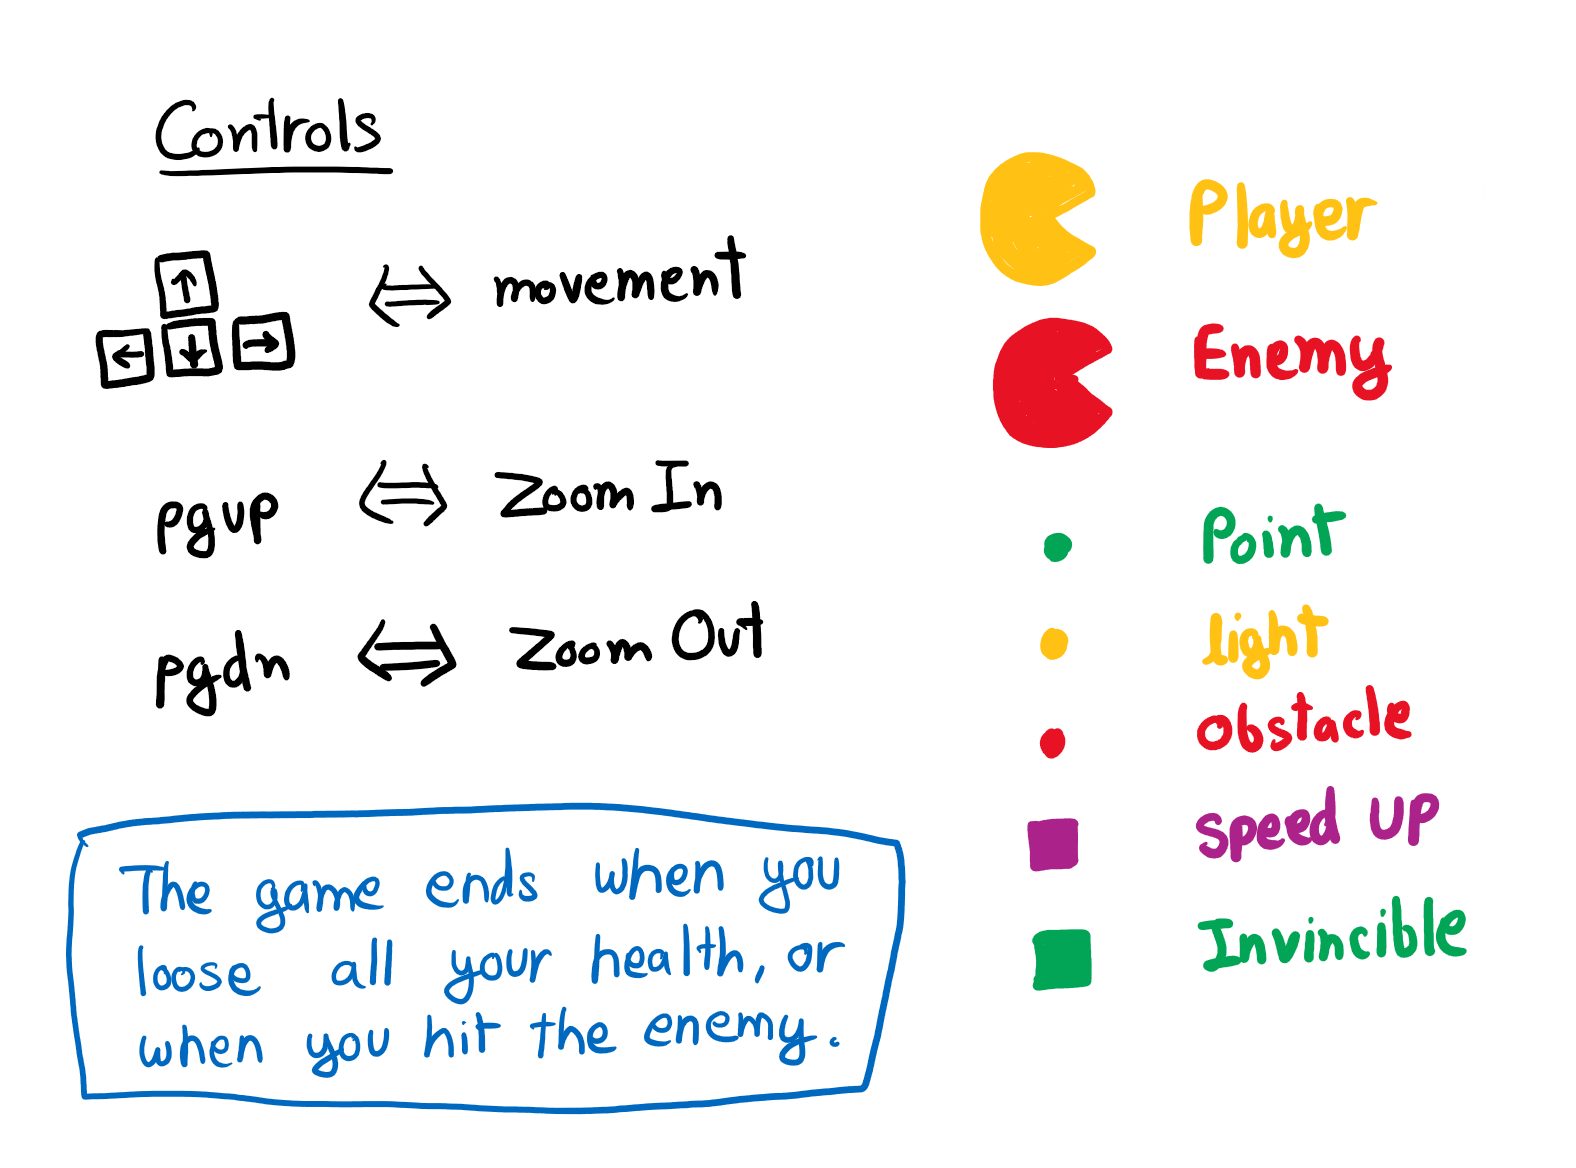 Controls
↑
← ↓ → ⇔ movement
pgup ⇔ Zoom In
pgdn ⇔ Zoom Out
The game ends when you
loose all your health, or
when you hit the enemy.
Player
Enemy
Point
light
obstacle
speed up
Invincible